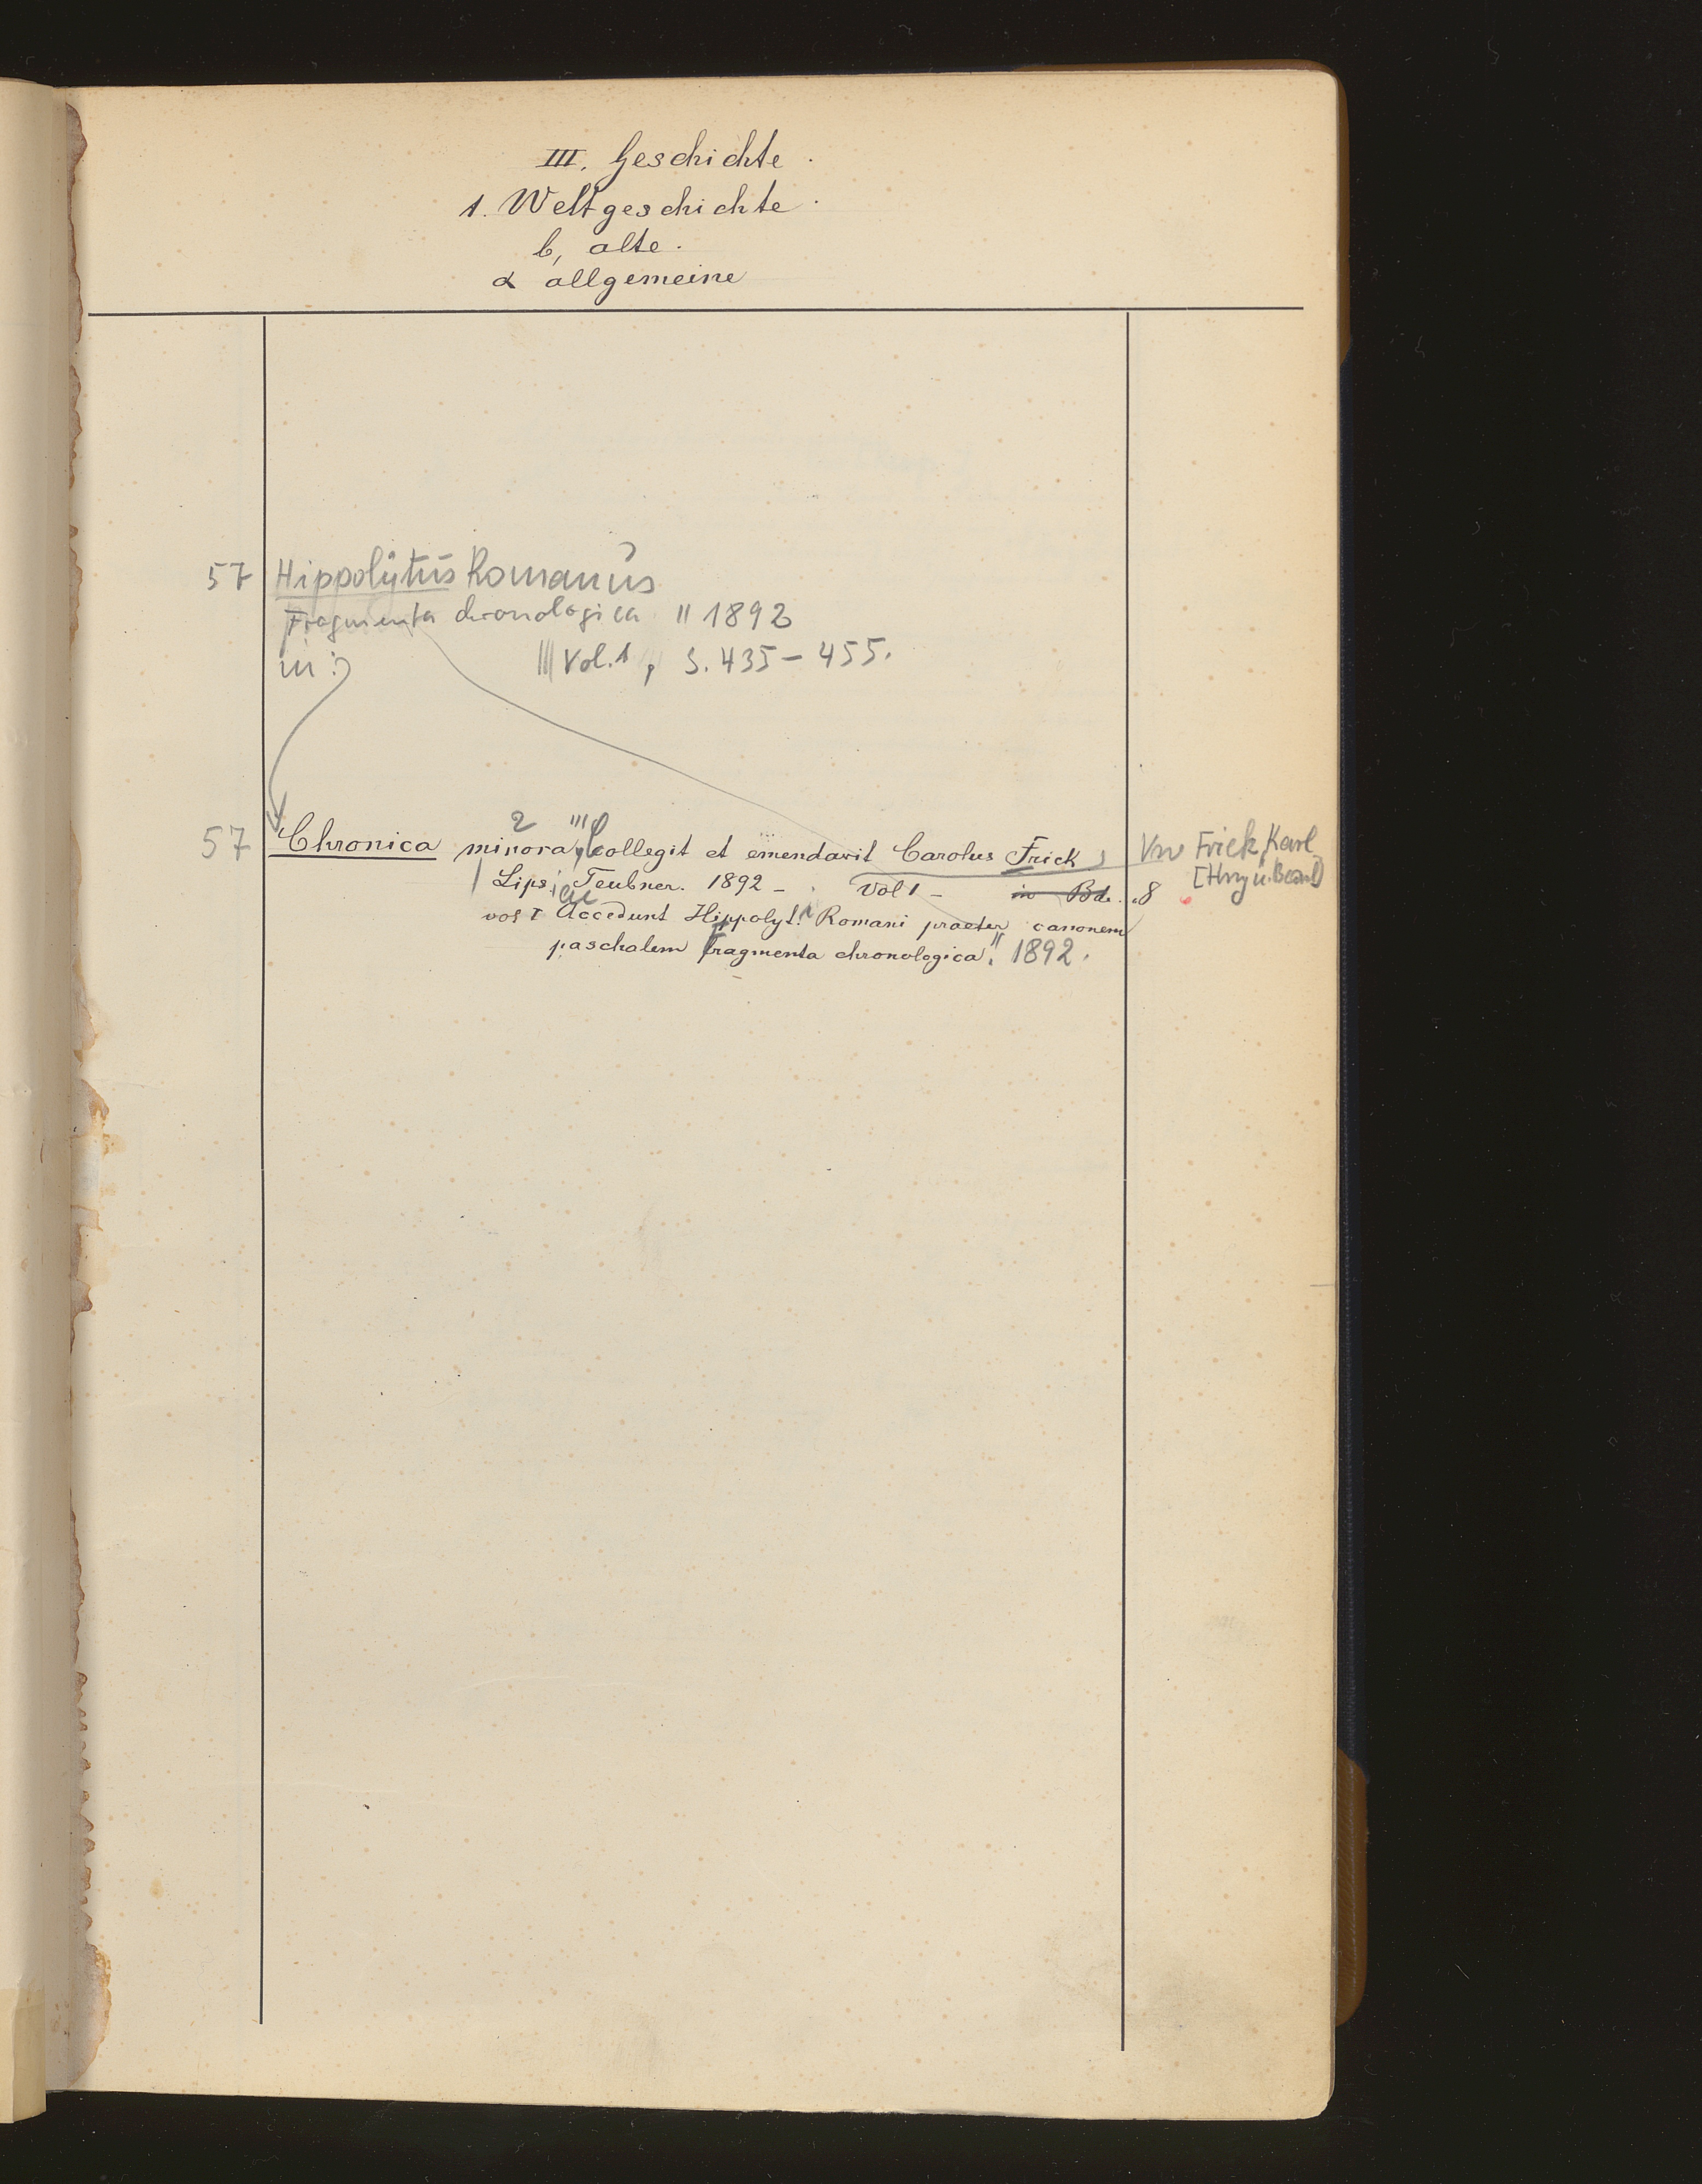 III. Geschichte.
1. Weltgeschichte.
b, alte.
α allgemeine
57 Hippolÿtus Romanus
Fragmenta chronologica " 1892
in: Vol. 1, S. 435-455.
2
57 Chronica minora collegit et emendavit Carolus Frick, Vw Frick, Karl
[Hrsg u. Bearb]
Lipsiae Teubner. 1892 - Vol 1 - in Bd. 8
vol I Accedunt Hippolyti Romani praeter canonem
paschalem fragmenta chronologica." 1892.